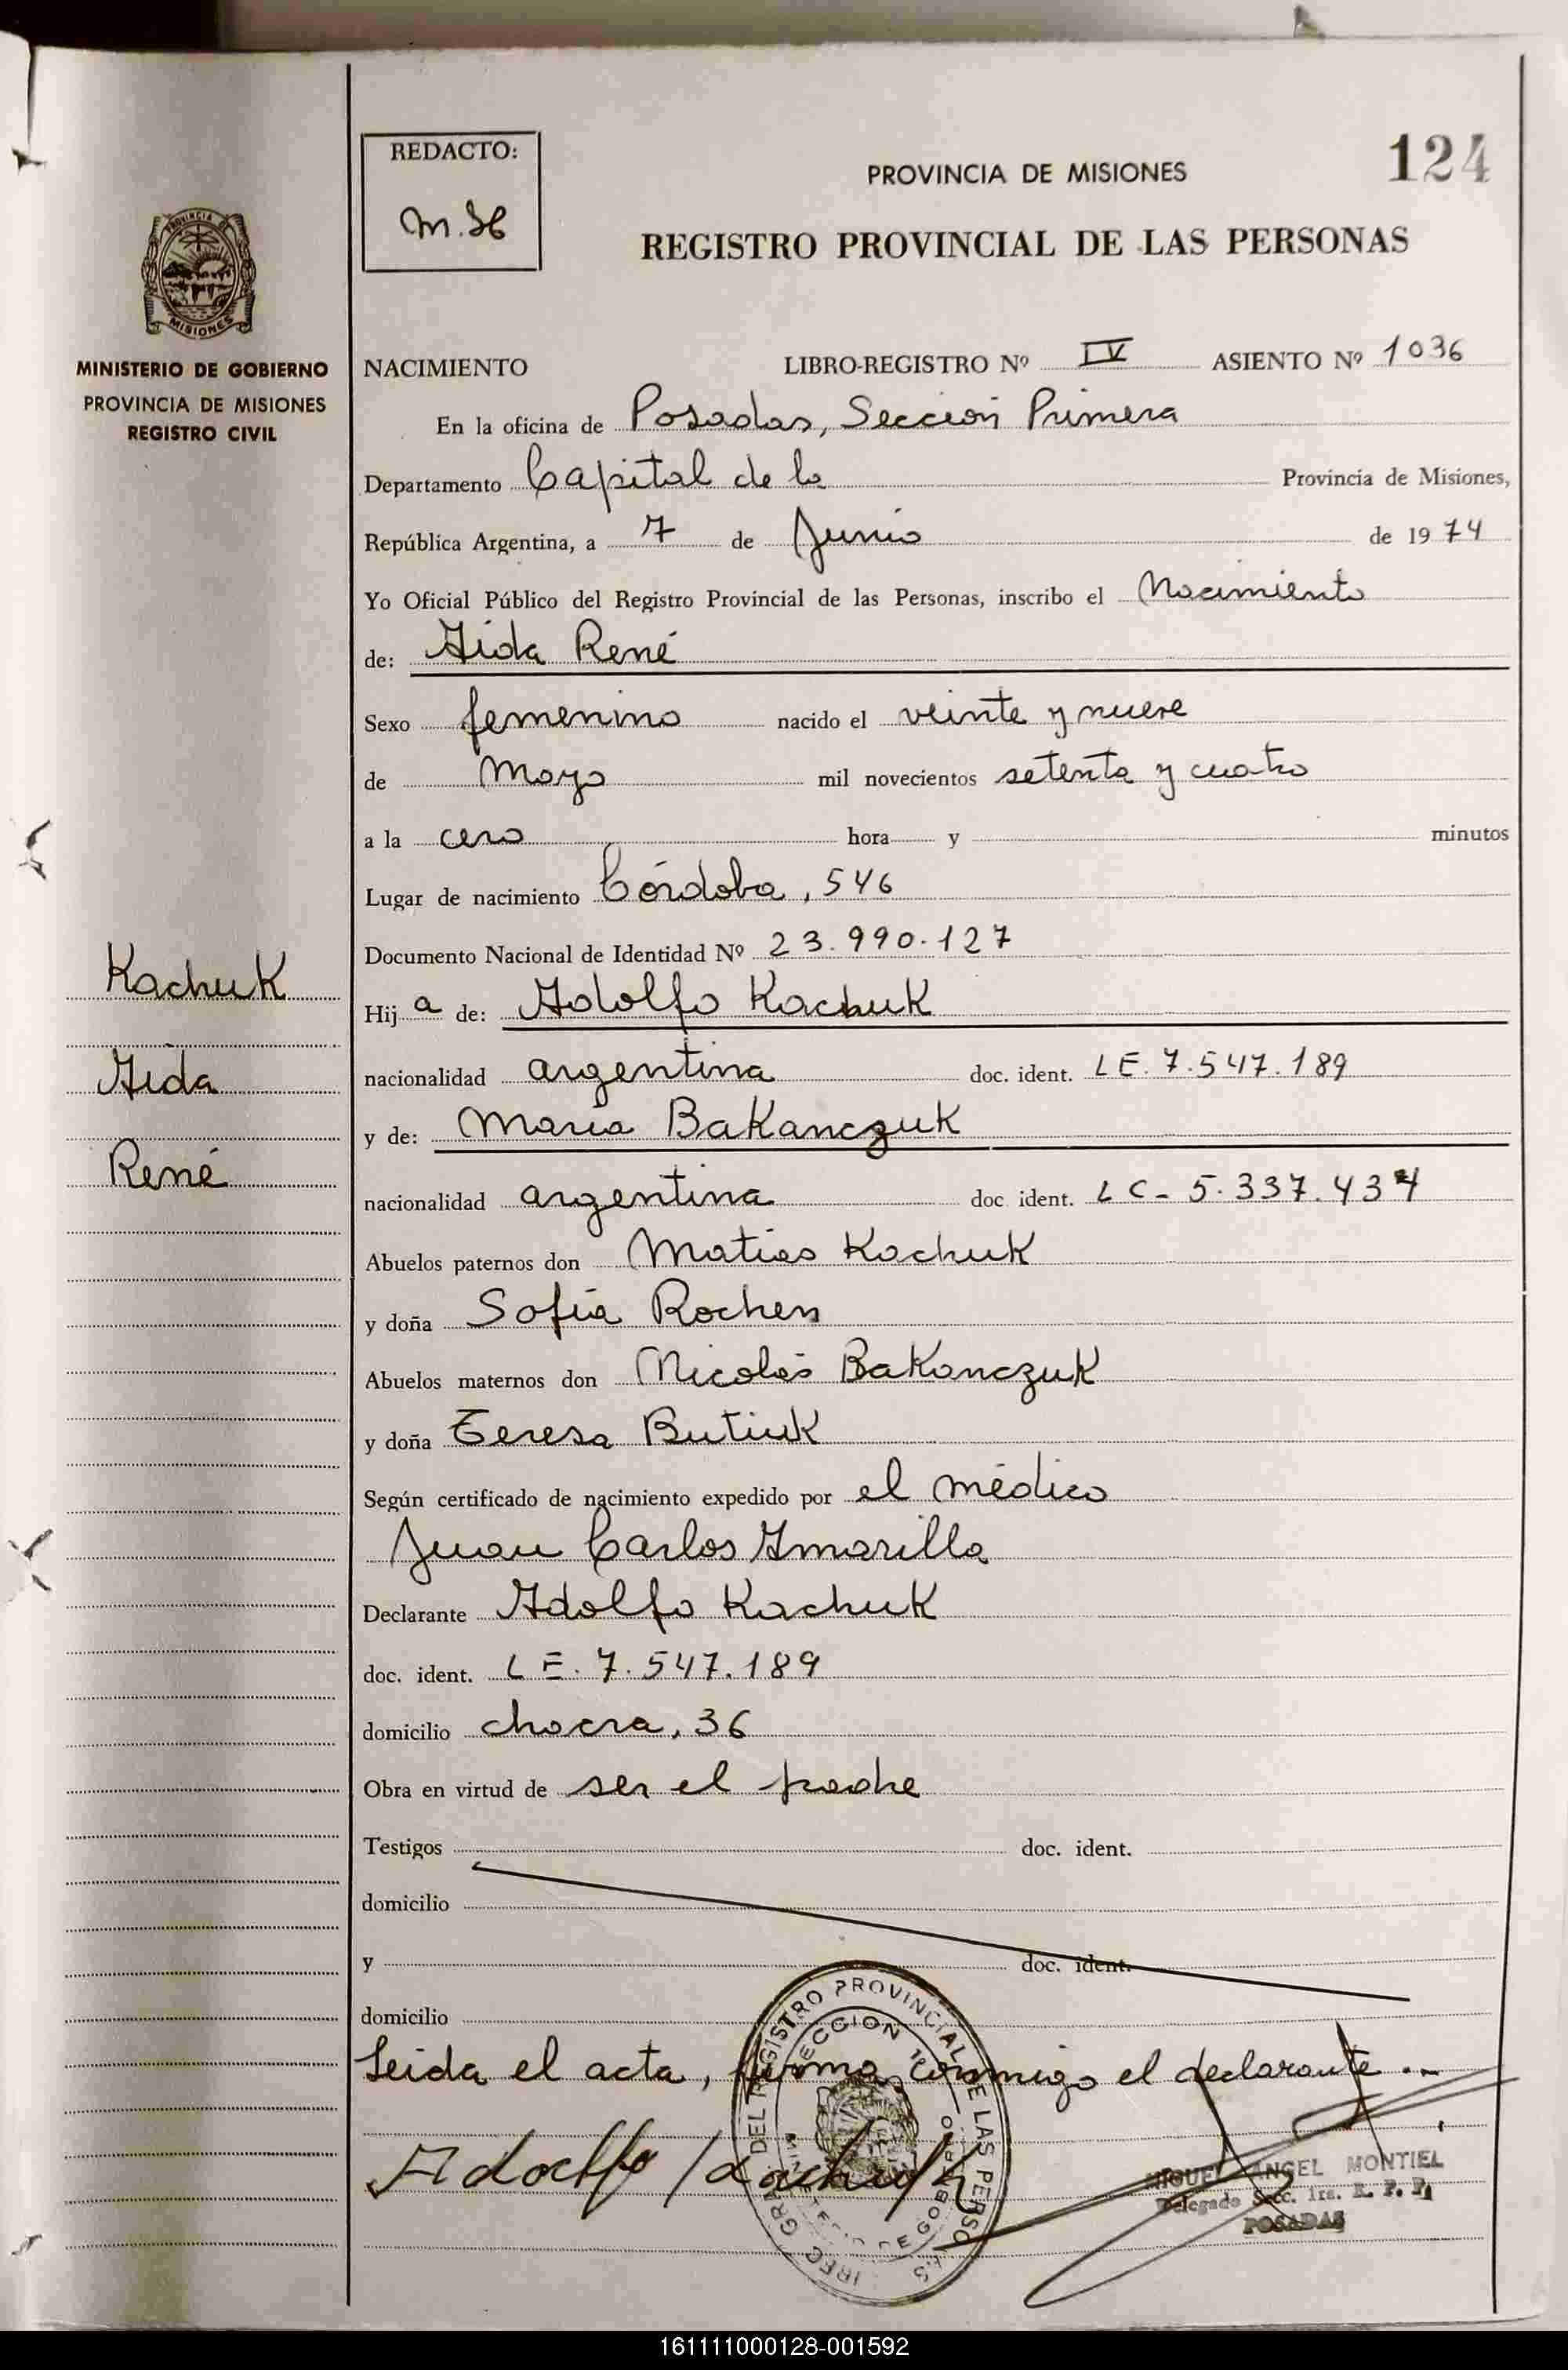 124
REDACTO:
M.H
PROVINCIA DE MISIONES
REGISTRO PROVINCIAL DE LAS PERSONAS
PROVINCIA
MISIONES
MINISTERIO DE GOBIERNO
PROVINCIA DE MISIONES
REGISTRO CIVIL
NACIMIENTO LIBRO-REGISTRO Nº IV ASIENTO Nº 1036
En la oficina de Posadas, Sección Primera
Departamento Capital de la Provincia de Misiones,
República Argentina, a 7 de Junio de 1974
Yo Oficial Público del Registro Provincial de las Personas, inscribo el Nacimiento
de: Aida René
Sexo femenino nacido el veinte y nueve
de Mayo mil novecientos setenta y cuatro
a la cero hora y minutos
Lugar de nacimiento Córdoba, 546
Documento Nacional de Identidad Nº 23.990.127
Kachuk
Hija de: Adolfo Kachuk
nacionalidad argentina doc. ident. LE. 7.547.189
Aida
y de: María Bakanczuk
René
nacionalidad argentina doc. ident. LC- 5.337.434
Abuelos paternos don Matias Kachuk
y doña Sofía Rochen
Abuelos maternos don Nicolás Bakanczuk
y doña Teresa Butiuk
Según certificado de nacimiento expedido por el médico
Juan Carlos Amarilla
Declarante Adolfo Kachuk
doc. ident. LE. 7.547.189
domicilio chacra, 36
Obra en virtud de ser el padre
Testigos doc. ident.
domicilio
y doc. ident.
domicilio
Leida el acta, firma conmigo el declarante..-
Adolfo Kachuk
DEL REGISTRO PROVINCIAL DE LAS PERSO
SECCION 1
DE GOBIERNO
MIGUEL ANGEL MONTIEL
Delegado Secc. 1ra. R. P. P.
POSADAS
161111000128-001592